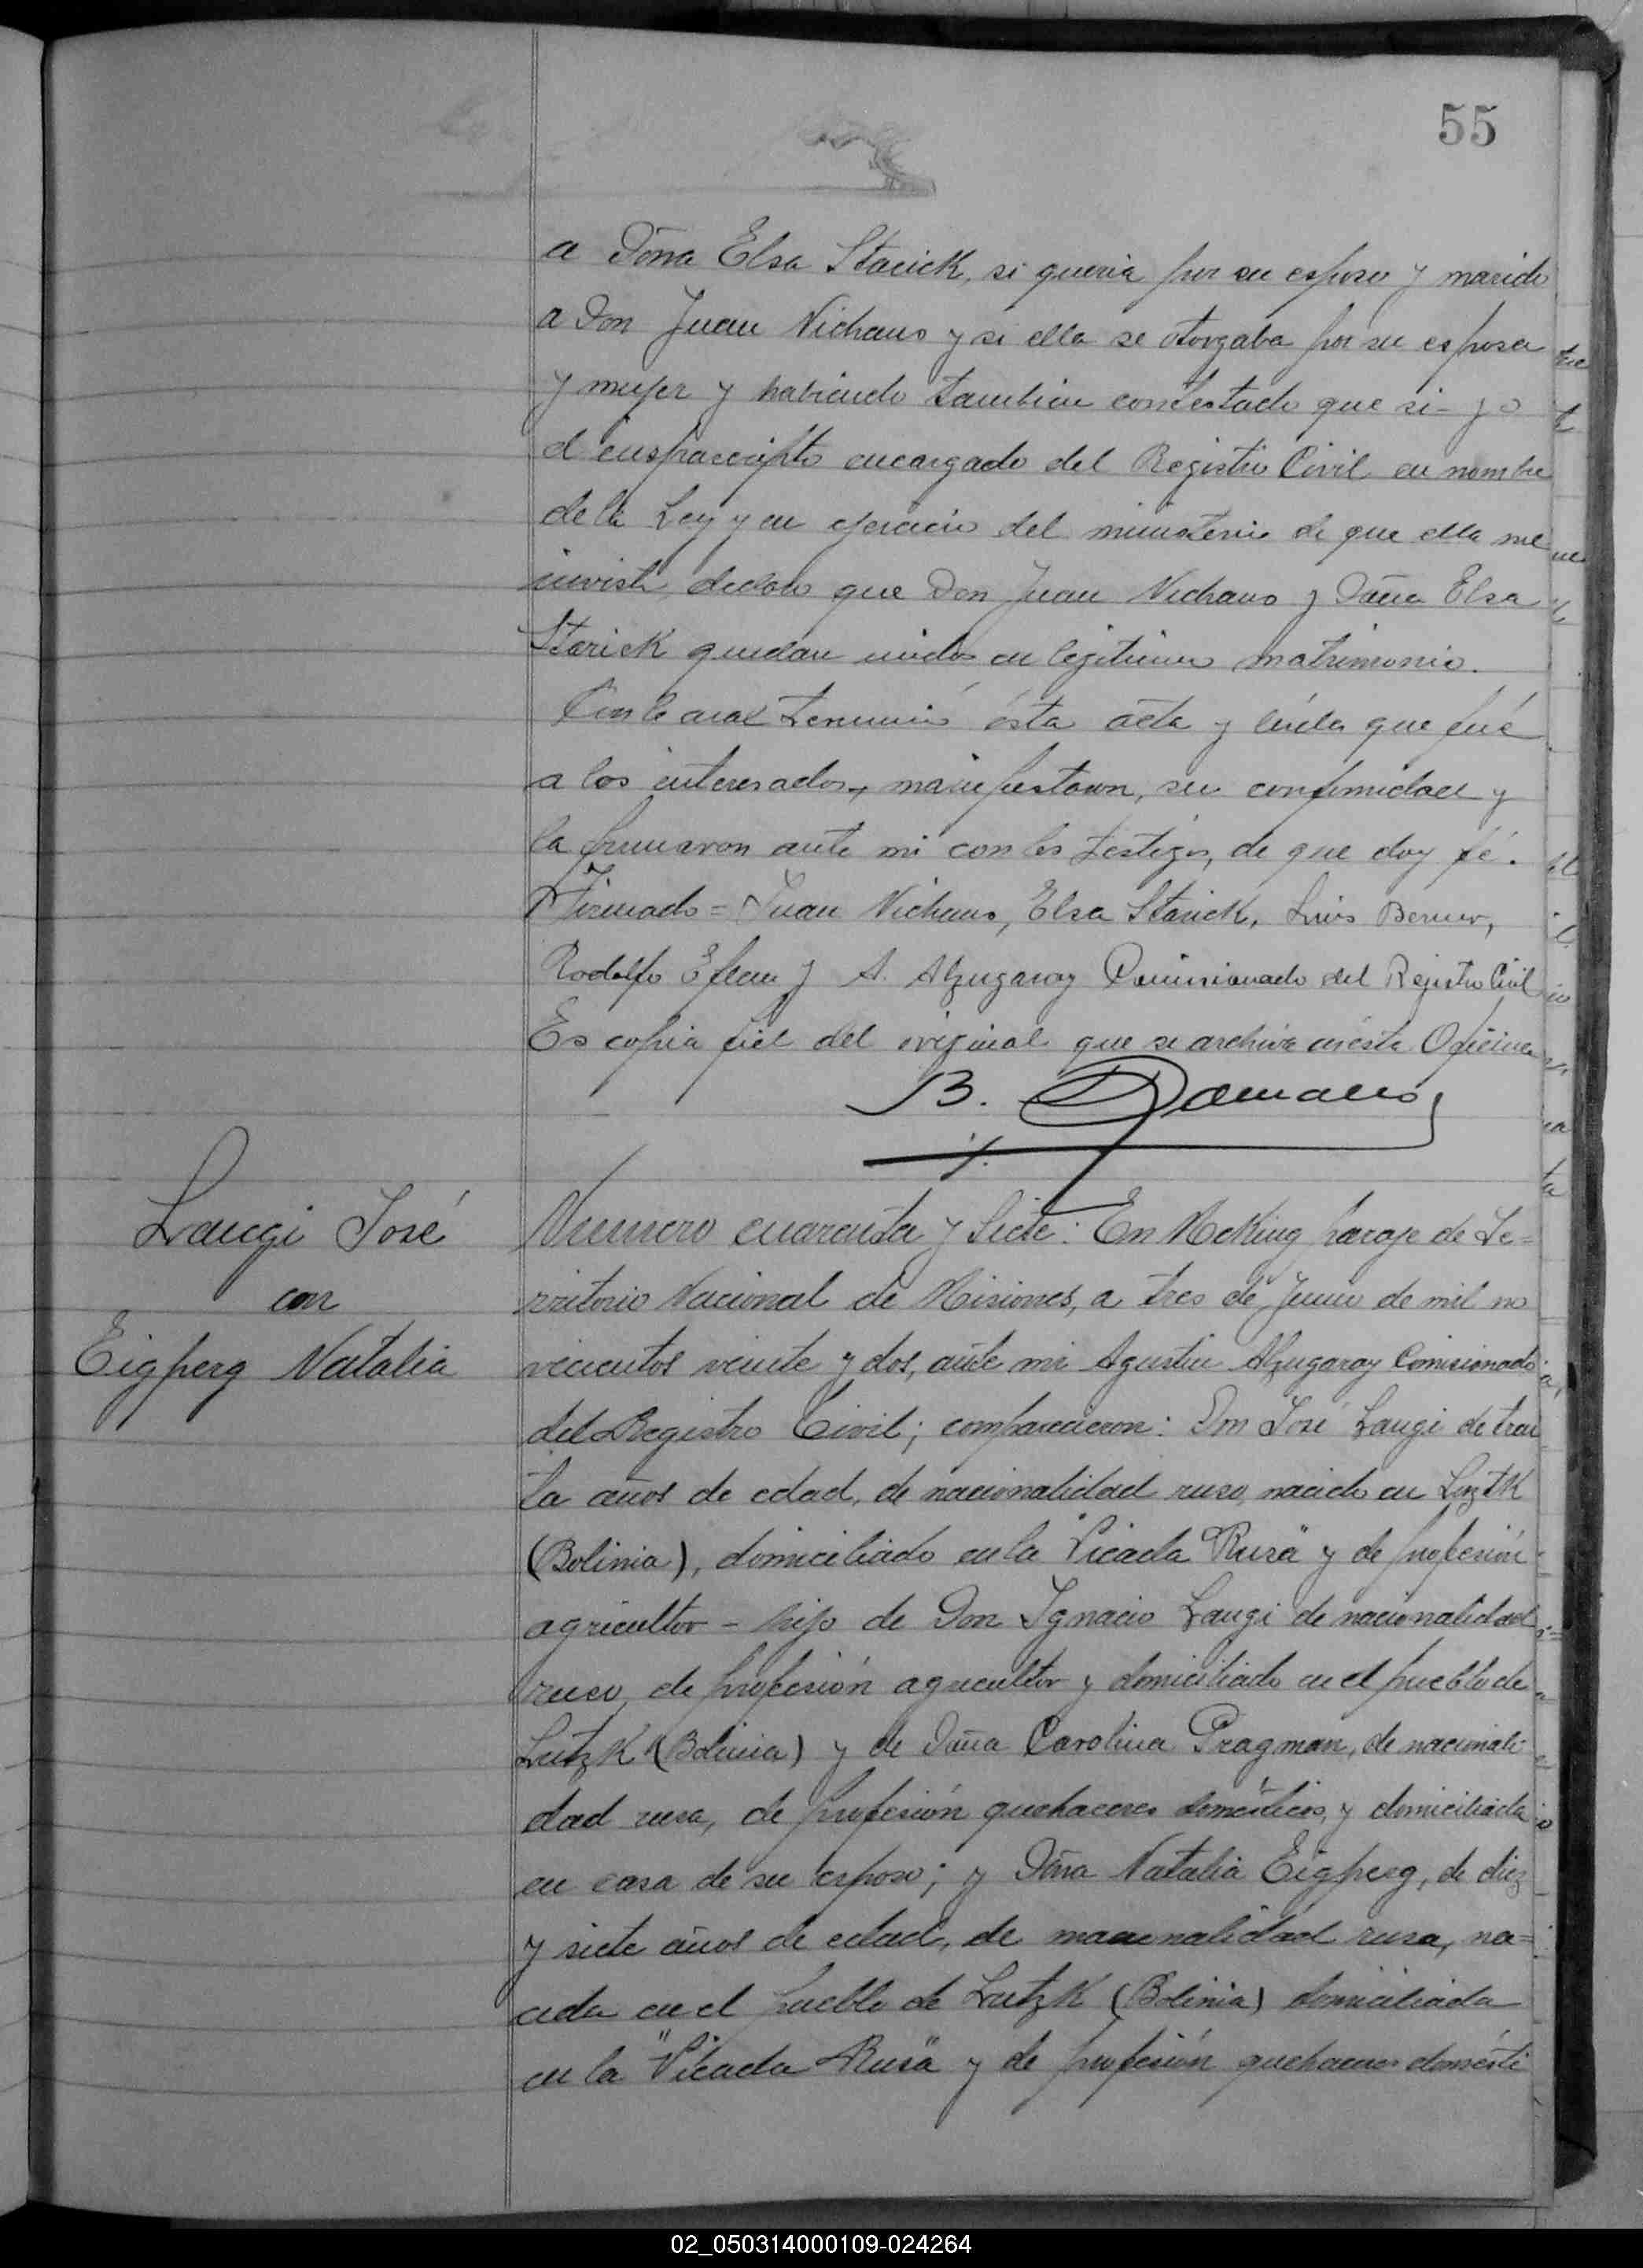 55
a Doña Elsa Starick, si queria por su esposo y marido
a Don Juan Nichaus y si ella se otorgaba por su esposa
y mujer y habiendo tambien contestado que si - yo
el infrascripto encargado del Registro Civil en nombre
de la Ley y en ejercicio del ministerio de que ella me
inviste, declaro que Don Juan Nichaus y Doña Elsa
Starick quedan unidos en legitimo matrimonio.
Con lo cual terminó ésta acta y leída que fué
a los interesados, manifestaron, su conformidad y
la firmaron ante mi con los testigos, de que doy fé.
Firmado = Juan Nichaus, Elsa Starick, Luis Berner,
Rodolfo Eflau y A. Alzugaray Comisionado del Registro Civil
Es copia fiel del original que se archiva en ésta Oficina
B.
Laugi José
con
Eigperg Natalia
Numero cuarenta y Siete: En McKing paraje de Te=
rritorio Nacional de Misiones, a tres de Junio de mil no
vecientos veinte y dos, ante mi Agustin Alzugaray Comisionado
del Registro Civil; comparecieron: Don José Laugi de trein
ta años de edad, de nacionalidad ruso, nacido en Luztk
(Bolinia), domiciliado en la "Picada Rusa" y de profesión
agricultor - hijo de Don Ignacio Laugi de nacionalidad
ruso, de profesión agricultor y domiciliado en el pueblo de
Lutzk (Bolinia) y de Doña Carolina Pragman, de nacionali-
dad rusa, de profesión quehaceres domésticos, y domiciliada
en casa de su esposo; y Doña Natalia Eigperg, de diez
y siete años de edad, de nacionalidad rusa, na=
cida en el pueblo de Lutzk (Bolinia) domiciliada
en la "Picada Rusa" y de profesión quehaceres domésti
02_050314000109-024264